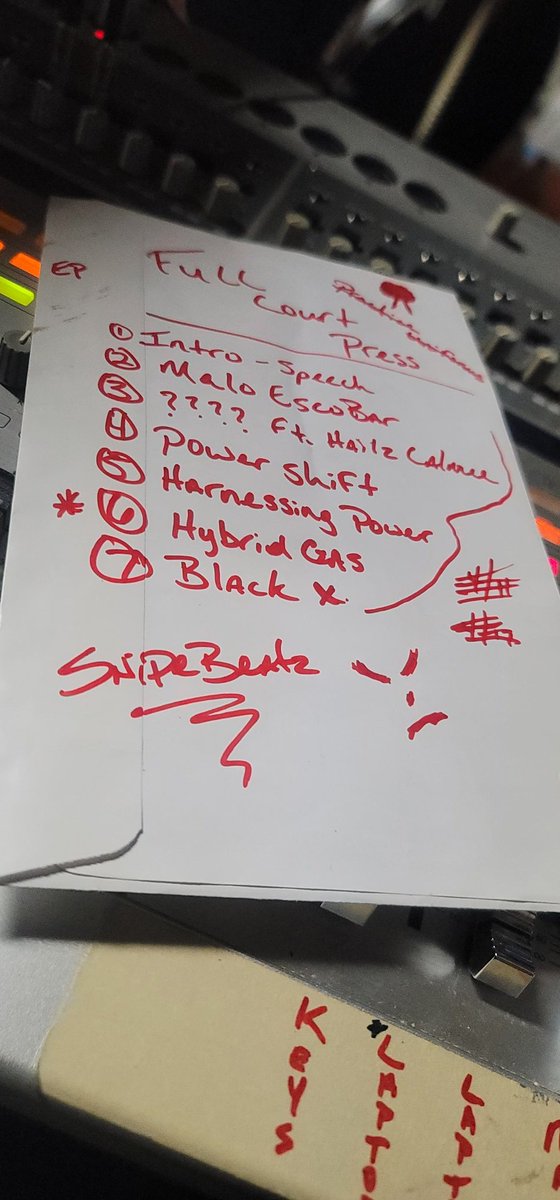 EP
Full
Court
Press
① Intro - Speech
② Malo EscoBar
③ ???? Ft. Hailz
④ Power Shift
⑤ Harnessing Power
* ⑥ Hybrid Gas
⑦ Black X.
SnipeBeatz
KEYS
LAPTO
LAPT